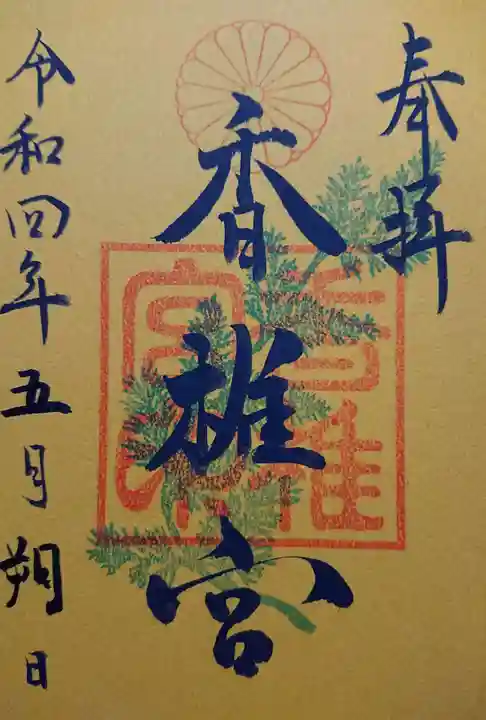 奉拝
香椎宮
令和四年五月朔日